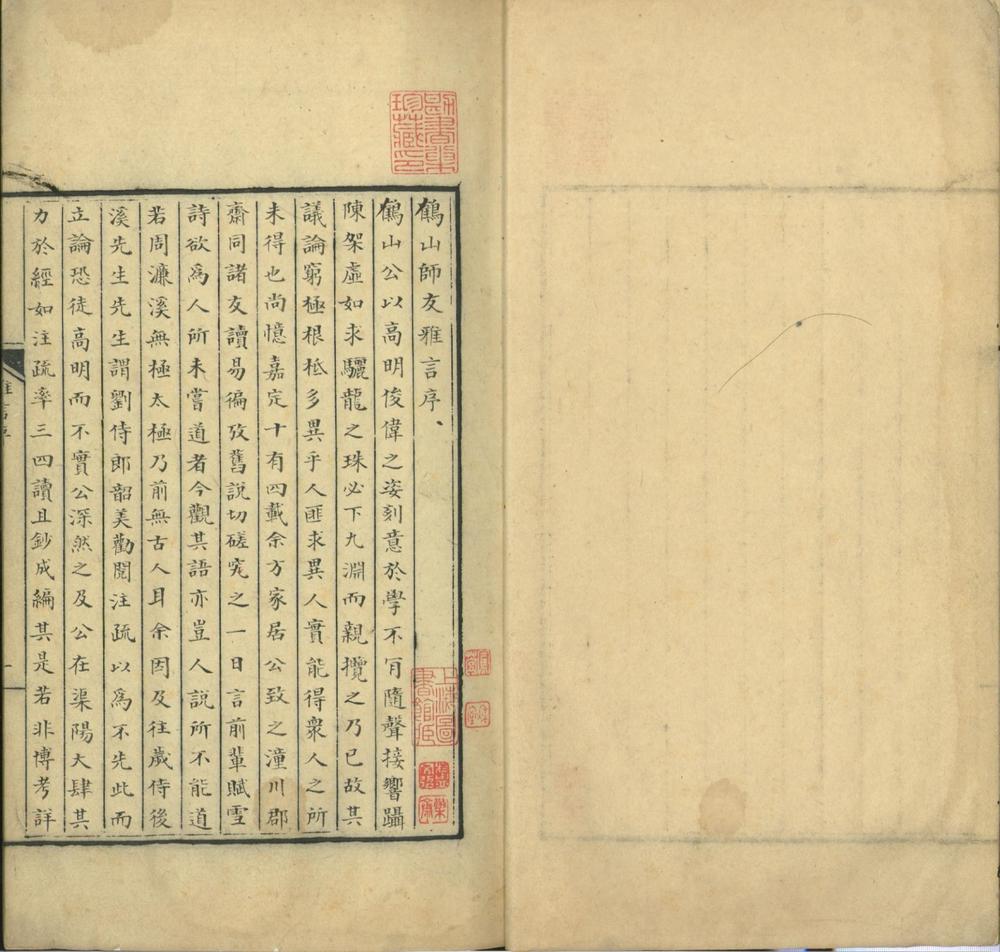 鶴山師友雅言序
鶴山公以高明俊偉之姿刻意於學不肎隨聲接響躡
陳架虛如求驪龍之珠必下九淵而親攬之乃已故其
議論窮極根柢多異乎人匪求異人實能得衆人之所
未得也尚憶嘉定十有四載余方家居公致之潼川郡
齋同諸友讀易徧攷舊説切磋究之一日言前輩賦雪
詩欲爲人所未嘗道者今觀其語亦豈人説所不能道
若周濂溪無極太極乃前無古人耳余因及往歲侍後
溪先生先生謂劉侍郎韶美勸閲注疏以爲不先此而
立論恐徒高明而不實公深然之及公在渠陽大肆其
力於經如注疏率三四讀且鈔成編其是若非博考詳
雅言序
一
珍藏印
上海圖書館藏